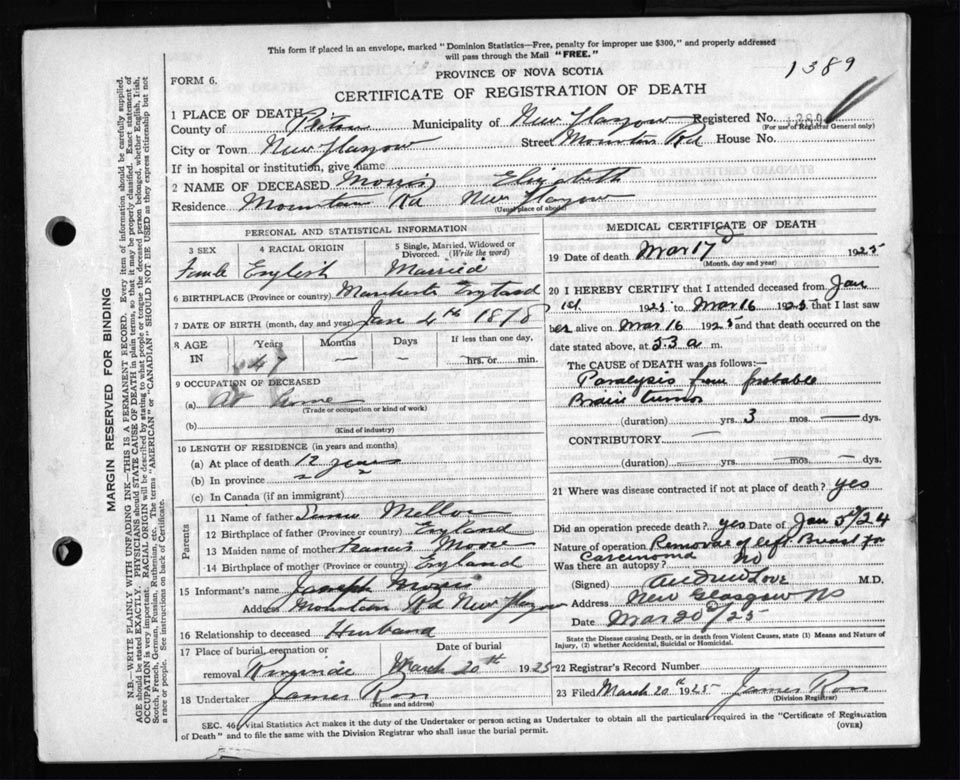 This form if placed in an envelope, marked "Dominion Statistics—Free, penalty for improper use $300," and properly addressed
will pass through the Mail "FREE."
1389
PROVINCE OF NOVA SCOTIA
FORM 6.
CERTIFICATE OF REGISTRATION OF DEATH
1 PLACE OF DEATH
County of Pictou Municipality of New Glasgow Registered No. 1389
(For use of Registrar General only)
City or Town New Glasgow Street Mountain Rd House No.
If in hospital or institution, give name
2 NAME OF DECEASED Morris Elizabeth
Residence Mountain Rd New Glasgow
(Usual place of abode)
PERSONAL AND STATISTICAL INFORMATION
3 SEX 4 RACIAL ORIGIN 5 Single, Married, Widowed or Divorced. (Write the word)
Female English Married
6 BIRTHPLACE (Province or country) Manchester England
7 DATE OF BIRTH (month, day and year) Jan 4th 1878
8 AGE IN Years Months Days If less than one day,
47 — — hrs. or min.
9 OCCUPATION OF DECEASED
(a) At home
(Trade or occupation or kind of work)
(b)
(Kind of industry)
10 LENGTH OF RESIDENCE (in years and months)
(a) At place of death 12 years
(b) In province "
(c) In Canada (if an immigrant)
Parents
11 Name of father Mellor
12 Birthplace of father (Province or country) England
13 Maiden name of mother Francis Moore
14 Birthplace of mother (Province or country) England
15 Informant's name Joseph Morris
Address Mountain Rd New Glasgow
16 Relationship to deceased Husband
17 Place of burial, cremation or removal Date of burial
Riverside March 20th 1925
18 Undertaker James Ross
(Name and address)
MEDICAL CERTIFICATE OF DEATH
19 Date of death Mar 17 1925
(Month, day and year)
20 I HEREBY CERTIFY that I attended deceased from Jan
1st 1925 to Mar 16 1925 that I last saw
her alive on Mar 16 1925 and that death occurred on
date stated above, at 5.3 a m.
The CAUSE OF DEATH was as follows:
Paralysis from probable
Brain tumor
(duration) yrs. 3 mos. dys.
CONTRIBUTORY —
(duration) yrs. — mos. — dys.
21 Where was disease contracted if not at place of death? yes
Did an operation precede death? yes Date of Jan 5th/24
Nature of operation Removal of left Breast for
Carcinoma
Was there an autopsy? No
(Signed) Andrew Love M.D.
Address New Glasgow NS
Date Mar 20/25
State the Disease causing Death, or in death from Violent Causes, state (1) Means and Nature of
Injury, (2) whether Accidental, Suicidal or Homicidal.
22 Registrar's Record Number
23 Filed March 20th 1925 James Ross
(Division Registrar)
SEC. 46, Vital Statistics Act makes it the duty of the Undertaker or person acting as Undertaker to obtain all the particulars required in the "Certificate of Registration
of Death" and to file the same with the Division Registrar who shall issue the burial permit. (OVER)
MARGIN RESERVED FOR BINDING
N.B.—WRITE PLAINLY WITH UNFADING INK—THIS IS A PERMANENT RECORD. Every item of information should be carefully supplied.
AGE should be stated EXACTLY. PHYSICIANS should STATE CAUSE OF DEATH in plain terms, so that it may be properly classified. Exact statement of
OCCUPATION is very important. RACIAL ORIGIN will be described by stating to what people or tongue the deceased person belonged, whether English, Irish,
Scotch, French, German, Russian, Ruthenian, etc. The terms "AMERICAN" or "CANADIAN" SHOULD NOT BE USED as they express citizenship but not
a race or people. See instructions on back of Certificate.